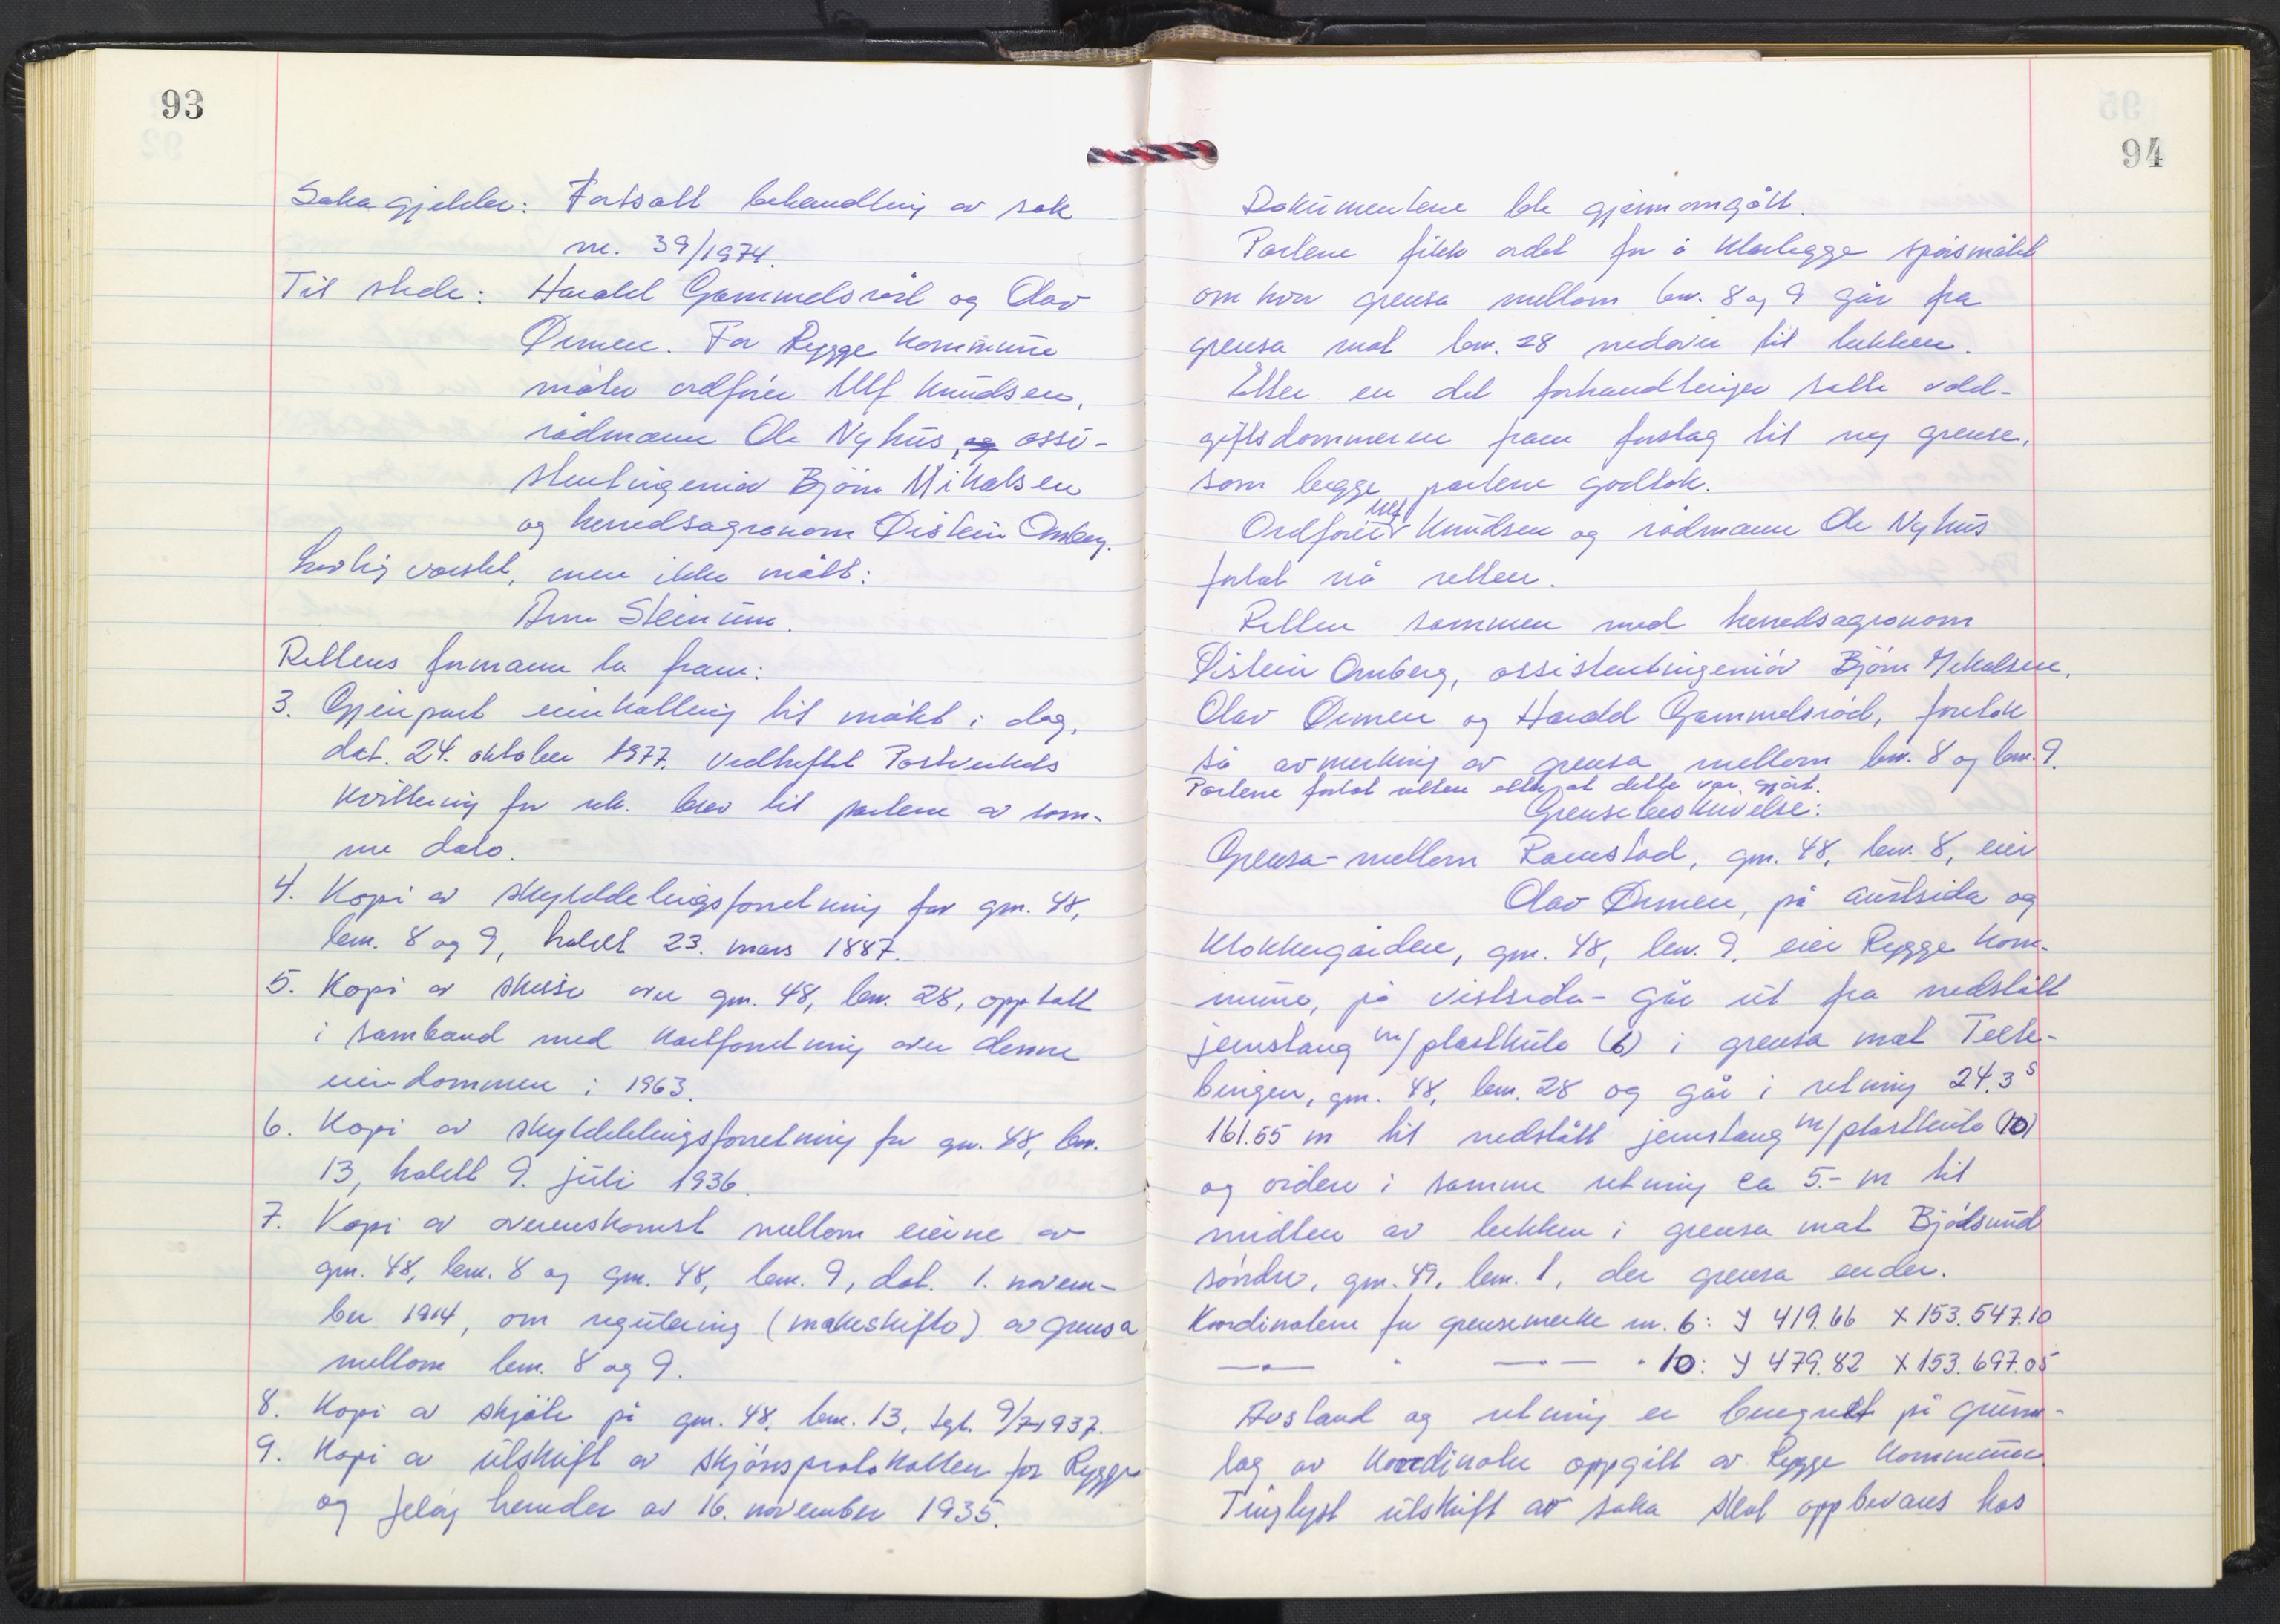 93
Saka gjelder: Fortsatt behandling av sak
nr. 39/1974.
Til stede: Harald Gammelsrød og Olav
Ørmen. For Rygge kommune
møter ordfører Ulf Knudsen,
rådmann Ole Nyhus, og assi-
stentingeniør Bjørn Mikalsen
og herredsagronom Øistein Omberg.
Lovlig varslet, men ikke møtt:
Arne Steinum.
Rettens formann la fram:
3. Gjenpart innkalling til møtet i dag,
dat. 24. oktober 1977. Vedheftet Postverkets
kvittering for rek. brev til partene av sam-
me dato.
4. Kopi av skylddelingsforretning for gnr. 48,
bnr. 8 og 9, holdt 23. mars 1887.
5. Kopi av skisse over gnr. 48, bnr. 28, opptatt
i samband med kartforretning over denne
eiendommen i 1963.
6. Kopi av skylddelingsforretning for gnr. 48, bnr.
13, holdt 9. juli 1936.
7. Kopi av overenskomst mellom eierne av
gnr. 48, bnr. 8 og gnr. 48, bnr. 9, dat. 1. novem-
ber 1914, om regulering (makeskifte) av grensa
mellom bnr. 8 og 9.
8. Kopi av skjøte på gnr. 48, bnr. 13, tgl. 9/7-1937.
9. Kopi av utskrift av skjønsprotokollen for Rygge
og Jeløy herreder av 16. november 1935.
94
Dokumentene ble gjennomgått.
Partene fikk ordet for å klarlegge spørsmålet
om hvor grensa mellom bnr. 8 og 9 går fra
grensa mot bnr. 28 nedover til bekken.
Etter en del forhandlinger satte odd-
giftsdommeren fram forslag til ny grense,
som begge partene godtok.
Ordfører Ulf Knudsen og rådmann Ole Nyhus
forlot nå retten.
Retten sammen med herredsagronom
Øistein Omberg, assistentingeniør Bjørn Mikalsen,
Olav Ørmen og Harald Gammelsrød, foretok
så avmerking av grensa mellom bnr. 8 og bnr. 9.
Partene forlot retten etter at dette var gjort.
Grensebeskrivelse:
Grensa - mellom Ramstad, gnr. 48, bnr. 8, eier
Olav Ørmen, på austsida og
Klokkergården, gnr. 48, bnr. 9, eier Rygge kom-
mune, på vestsida - går ut fra nedslått
jernstang m/plastkule (6) i grensa mot Teek-
bingen, gnr. 48, bnr. 28 og går i retning 24.3g
161.55 m til nedslått jernstang m/plastkule (10)
og videre i samme retning ca 5.- m til
midten av bekken i grensa mot Bjølsund
søndre, gnr. 49, bnr. 1, der grensa ender.
Koordinatene for grensemerke nr. 6: Y 419.66 X 153.547.10
—"— " —"— " 10: Y 479.82 X 153.697.05
Avstand og retning er beregnet på grunn-
lag av koordinater oppgitt av Rygge kommune.
Tinglyst utskrift av saka skal oppbevares hos